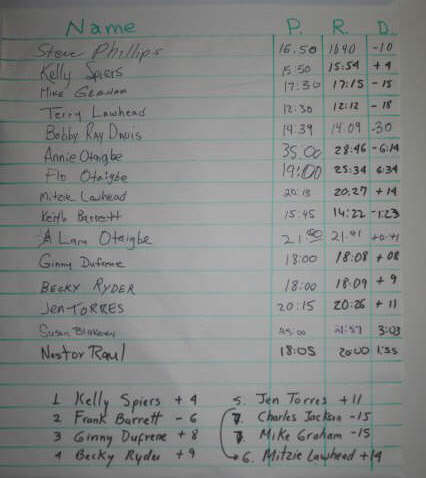 Name P. R. D.
Steve Phillips 16:50 1640 -10
Kelly Spiers 15:50 15:54 + 4
Mike Graham 17:30 17:15 - 15
Terry Lawhead 12:30 12:12 - 18
Bobby Ray Davis 14:39 14:09 -30
Annie Otaigbe 35:00 28:46 -6:14
Flo Otaigbe 19:00 25:34 6:34
Mitzie Lawhead 20:13 20:27 + 14
Keith Barrett 15:45 14:22 -1:23
Lara Otaigbe 21:00 21:41 +0:41
Ginny Dufrene 18:00 18:08 + 08
Becky Ryder 18:00 18:09 + 9
Jen Torres 20:15 20:26 + 11
Susan Blakeney 21:57 3:03
Nestor Raul 18:05 20:00 1:55
1 Kelly Spiers + 4 5. Jen Torres + 11
2 Frank Barrett - 6 7. Charles Jackson -15
3 Ginny Dufrene + 8 7 Mike Graham -15
4 Becky Ryder + 9 6. Mitzie Lawhead +14